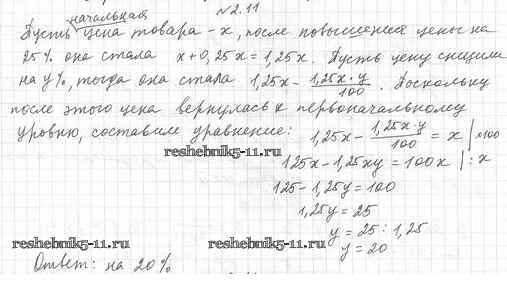 №2.11
начальная
Пусть цена товара - x, после повышения цены на
25% она стала x+0,25x=1,25x. Пусть цену снизили
на y%, тогда она стала 1,25x - 1,25x·y/100. Поскольку
после этого цена вернулась к первоначальному
уровню, составим уравнение: 1,25x - 1,25x·y/100 = x |×100
reshebnik5-11.ru
125x - 1,25xy = 100x | : x
125 - 1,25y = 100
1,25y = 25
y = 25 : 1,25
reshebnik5-11.ru
reshebnik5-11.ru
y = 20.
Ответ: на 20%